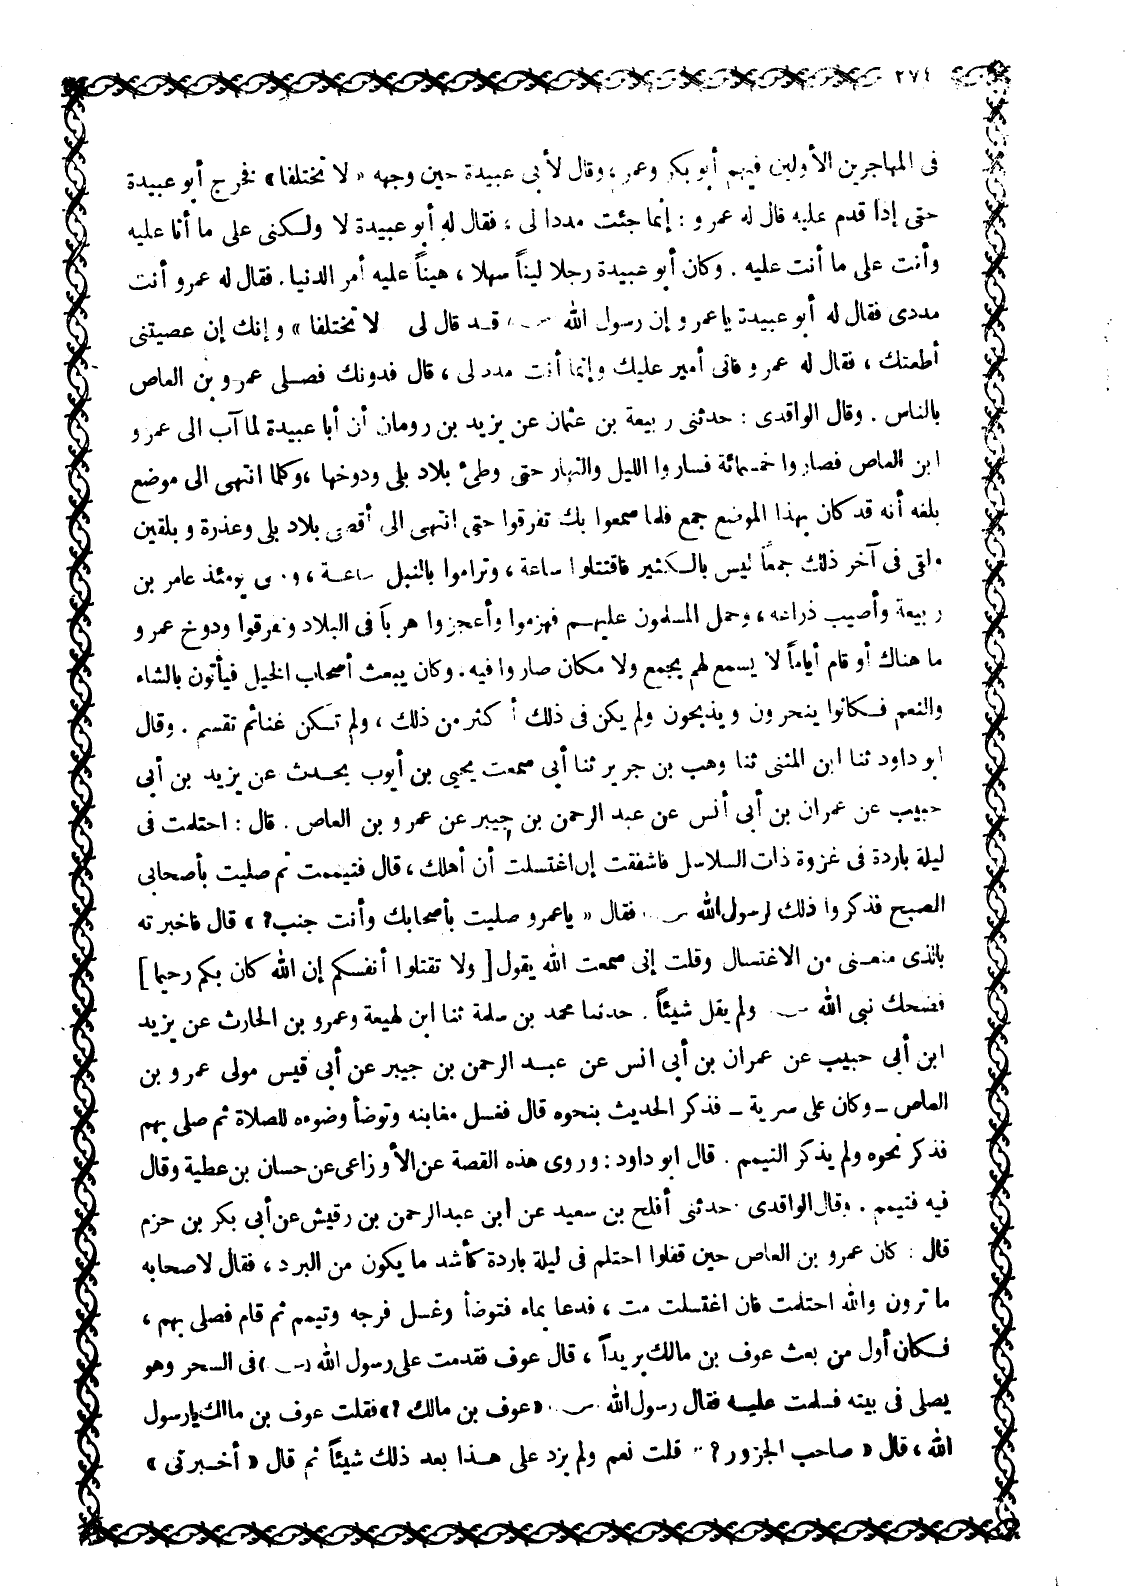 ٢٧٤
فى المهاجرين الأولين فيهم أبو بكر وعمر ، وقال لأبى عبيدة حين وجهه « لا تختلفا » فخرج أبو عبيدة
حتى إذا قدم عليه قال له عمرو : إنما جئت مددا لى ، فقال له أبو عبيدة لا ولكنى على ما أنا عليه
وأنت على ما أنت عليه . وكان أبو عبيدة رجلا ليناً سهلا ، هيناً عليه أمر الدنيا . فقال له عمرو أنت
مددى فقال له أبو عبيدة ياعمرو إن رسول الله قد قال لى لا تختلفا » وإنك إن عصيتنى
أطعتك ، فقال له عمرو فانى أمير عليك وإنما أنت مدد لى ، قال فدونك فصلى عمرو بن العاص
بالناس . وقال الواقدى : حدثنى ربيعة بن عثمان عن يزيد بن رومان أن أبا عبيدة لما آب الى عمرو
ابن العاص فصاروا خمسمائة فساروا الليل والنهار حتى وطئ بلاد بلى ودوخها ، وكلما انتهى الى موضع
بلغه أنه قد كان بهذا الموضع جمع فلما سمعوا بك تفرقوا حتى انتهى الى أقصى بلاد بلى وعذرة وبلقين
ولقى فى آخر ذلك جمعاً ليس بالكثير فاقتتلوا ساعة ، وتراموا بالنبل ساعة ، ورمى يومئذ عامر بن
ربيعة وأصيب ذراعه ، وحمل المسلمون عليهم فهزموا وأعجزوا هرباً فى البلاد وتفرقوا ودوخ عمرو
ما هناك أو قام أياماً لا يسمع لهم بجمع ولا مكان صاروا فيه . وكان يبعث أصحاب الخيل فيأتون بالشاء
والنعم فكانوا ينحرون ويذبحون ولم يكن فى ذلك أكثر من ذلك ، ولم تكن غنائم تقسم . وقال
ابو داود ثنا ابن المثنى ثنا وهب بن جرير ثنا أبى سمعت يحيى بن أيوب يحدث عن يزيد بن أبى
حبيب عن عمران بن أبى أنس عن عبد الرحمن بن جبير عن عمرو بن العاص . قال : احتلمت فى
ليلة باردة فى غزوة ذات السلاسل فاشفقت إن اغتسلت أن أهلك ، قال فتيممت ثم صليت بأصحابى
الصبح فذكروا ذلك لرسول الله فقال « ياعمرو صليت بأصحابك وأنت جنب ? » قال فاخبرته
بالذى منعنى من الاغتسال وقلت إنى سمعت الله يقول [ ولا تقتلوا أنفسكم إن الله كان بكم رحيما ]
فضحك نبى الله ولم يقل شيئاً . حدثنا محمد بن سلمة ثنا ابن لهيعة وعمرو بن الحارث عن يزيد
ابن أبى حبيب عن عمران بن أبى انس عن عبد الرحمن بن جبير عن أبى قيس مولى عمرو بن
العاص – وكان على سرية – فذكر الحديث بنحوه قال فغسل مغابنه وتوضأ وضوءه للصلاة ثم صلى بهم
فذكر نحوه ولم يذكر التيمم . قال ابو داود : وروى هذه القصة عن الأوزاعى عن حسان بن عطية وقال
فيه فتيمم . وقال الواقدى حدثنى أفلح بن سعيد عن ابن عبدالرحمن بن رقيش عن أبى بكر بن حزم
قال : كان عمرو بن العاص حين قفلوا احتلم فى ليلة باردة كأشد ما يكون من البرد ، فقال لاصحابه
ما ترون والله احتلمت فان اغتسلت مت ، فدعا بماء فتوضأ وغسل فرجه وتيمم ثم قام فصلى بهم ،
فكان أول من بعث عوف بن مالك بريداً ، قال عوف فقدمت على رسول الله (س) فى السحر وهو
يصلى فى بيته فسلمت عليه فقال رسول الله « عوف بن مالك ? » فقلت عوف بن مالك يارسول
الله ، قال « صاحب الجزور ? » قلت نعم ولم يزد على هذا بعد ذلك شيئاً ثم قال « أخبرنى »